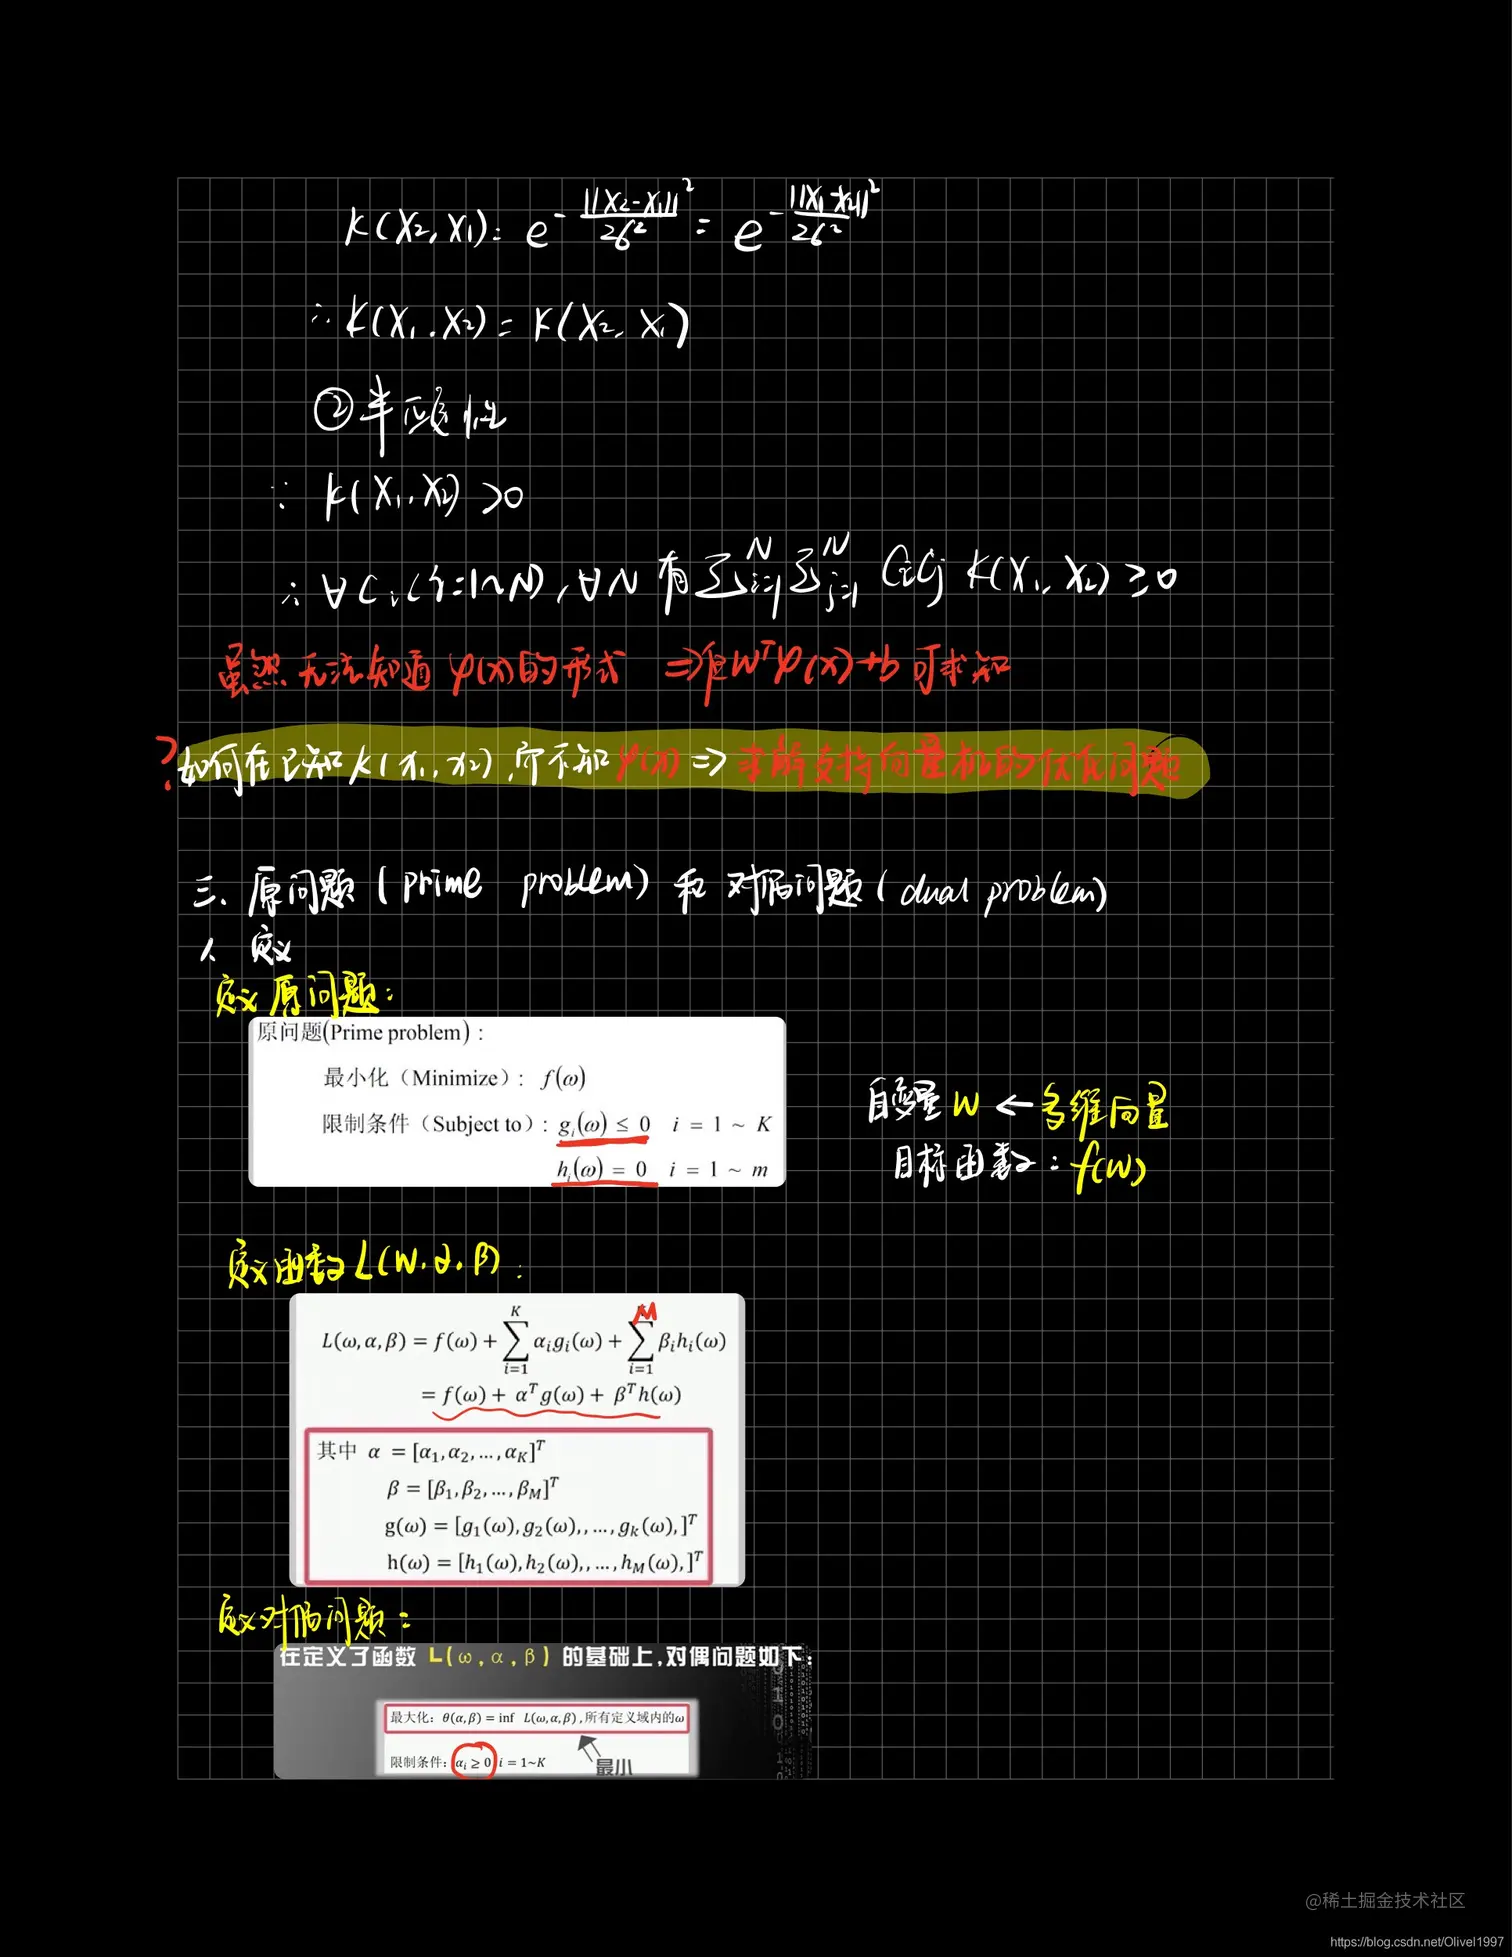 K(X₂,X₁) = e^{-||X₂-X₁||²/2б²} = e^{-||X₁-X₂||²/2б²}
∴ K(X₁,X₂) = K(X₂,X₁)
②半正定性
∵ K(X₁,X₂) >0
∴ ∀Cᵢ(i=1~N),∀N 有 ∑ᵢ₌₁ᴺ ∑ⱼ₌₁ᴺ CᵢCⱼ K(X₁,X₂) ≥0
虽然无法知道 φ(x)的形式 ⇒但WᵀΨ(X)+b 可求知
?如何在已知K(x₁,x₂),而不知φ(x) ⇒ 求解支持向量机的优化问题
三、原问题(prime problem)和对偶问题(dual problem)
1、定义
定义原问题:
原问题(Prime problem):
最小化(Minimize): f(ω)
限制条件(Subject to): gᵢ(ω) ≤ 0 i = 1 ~ K
hᵢ(ω) = 0 i = 1 ~ m
自变量 W ← 多维向量
目标函数: f(W)
定义函数L(W,α,β):
L(ω,α,β) = f(ω) + ∑ᵢ₌₁ᴷ αᵢgᵢ(ω) + ∑ᵢ₌₁ᴹ βᵢhᵢ(ω)
= f(ω) + αᵀg(ω) + βᵀh(ω)
其中 α = [α₁,α₂,…,α_K]ᵀ
β = [β₁,β₂,…,β_M]ᵀ
g(ω) = [g₁(ω),g₂(ω),,…,gₖ(ω),]ᵀ
h(ω) = [h₁(ω),h₂(ω),,…,h_M(ω),]ᵀ
定义对偶问题:
在定义了函数 L(ω,α,β) 的基础上,对偶问题如下:
最大化: θ(α,β) = inf L(ω,α,β),所有定义域内的ω
限制条件: αᵢ ≥ 0 i = 1~K
最小
@稀土掘金技术社区
https://blog.csdn.net/Olivel1997